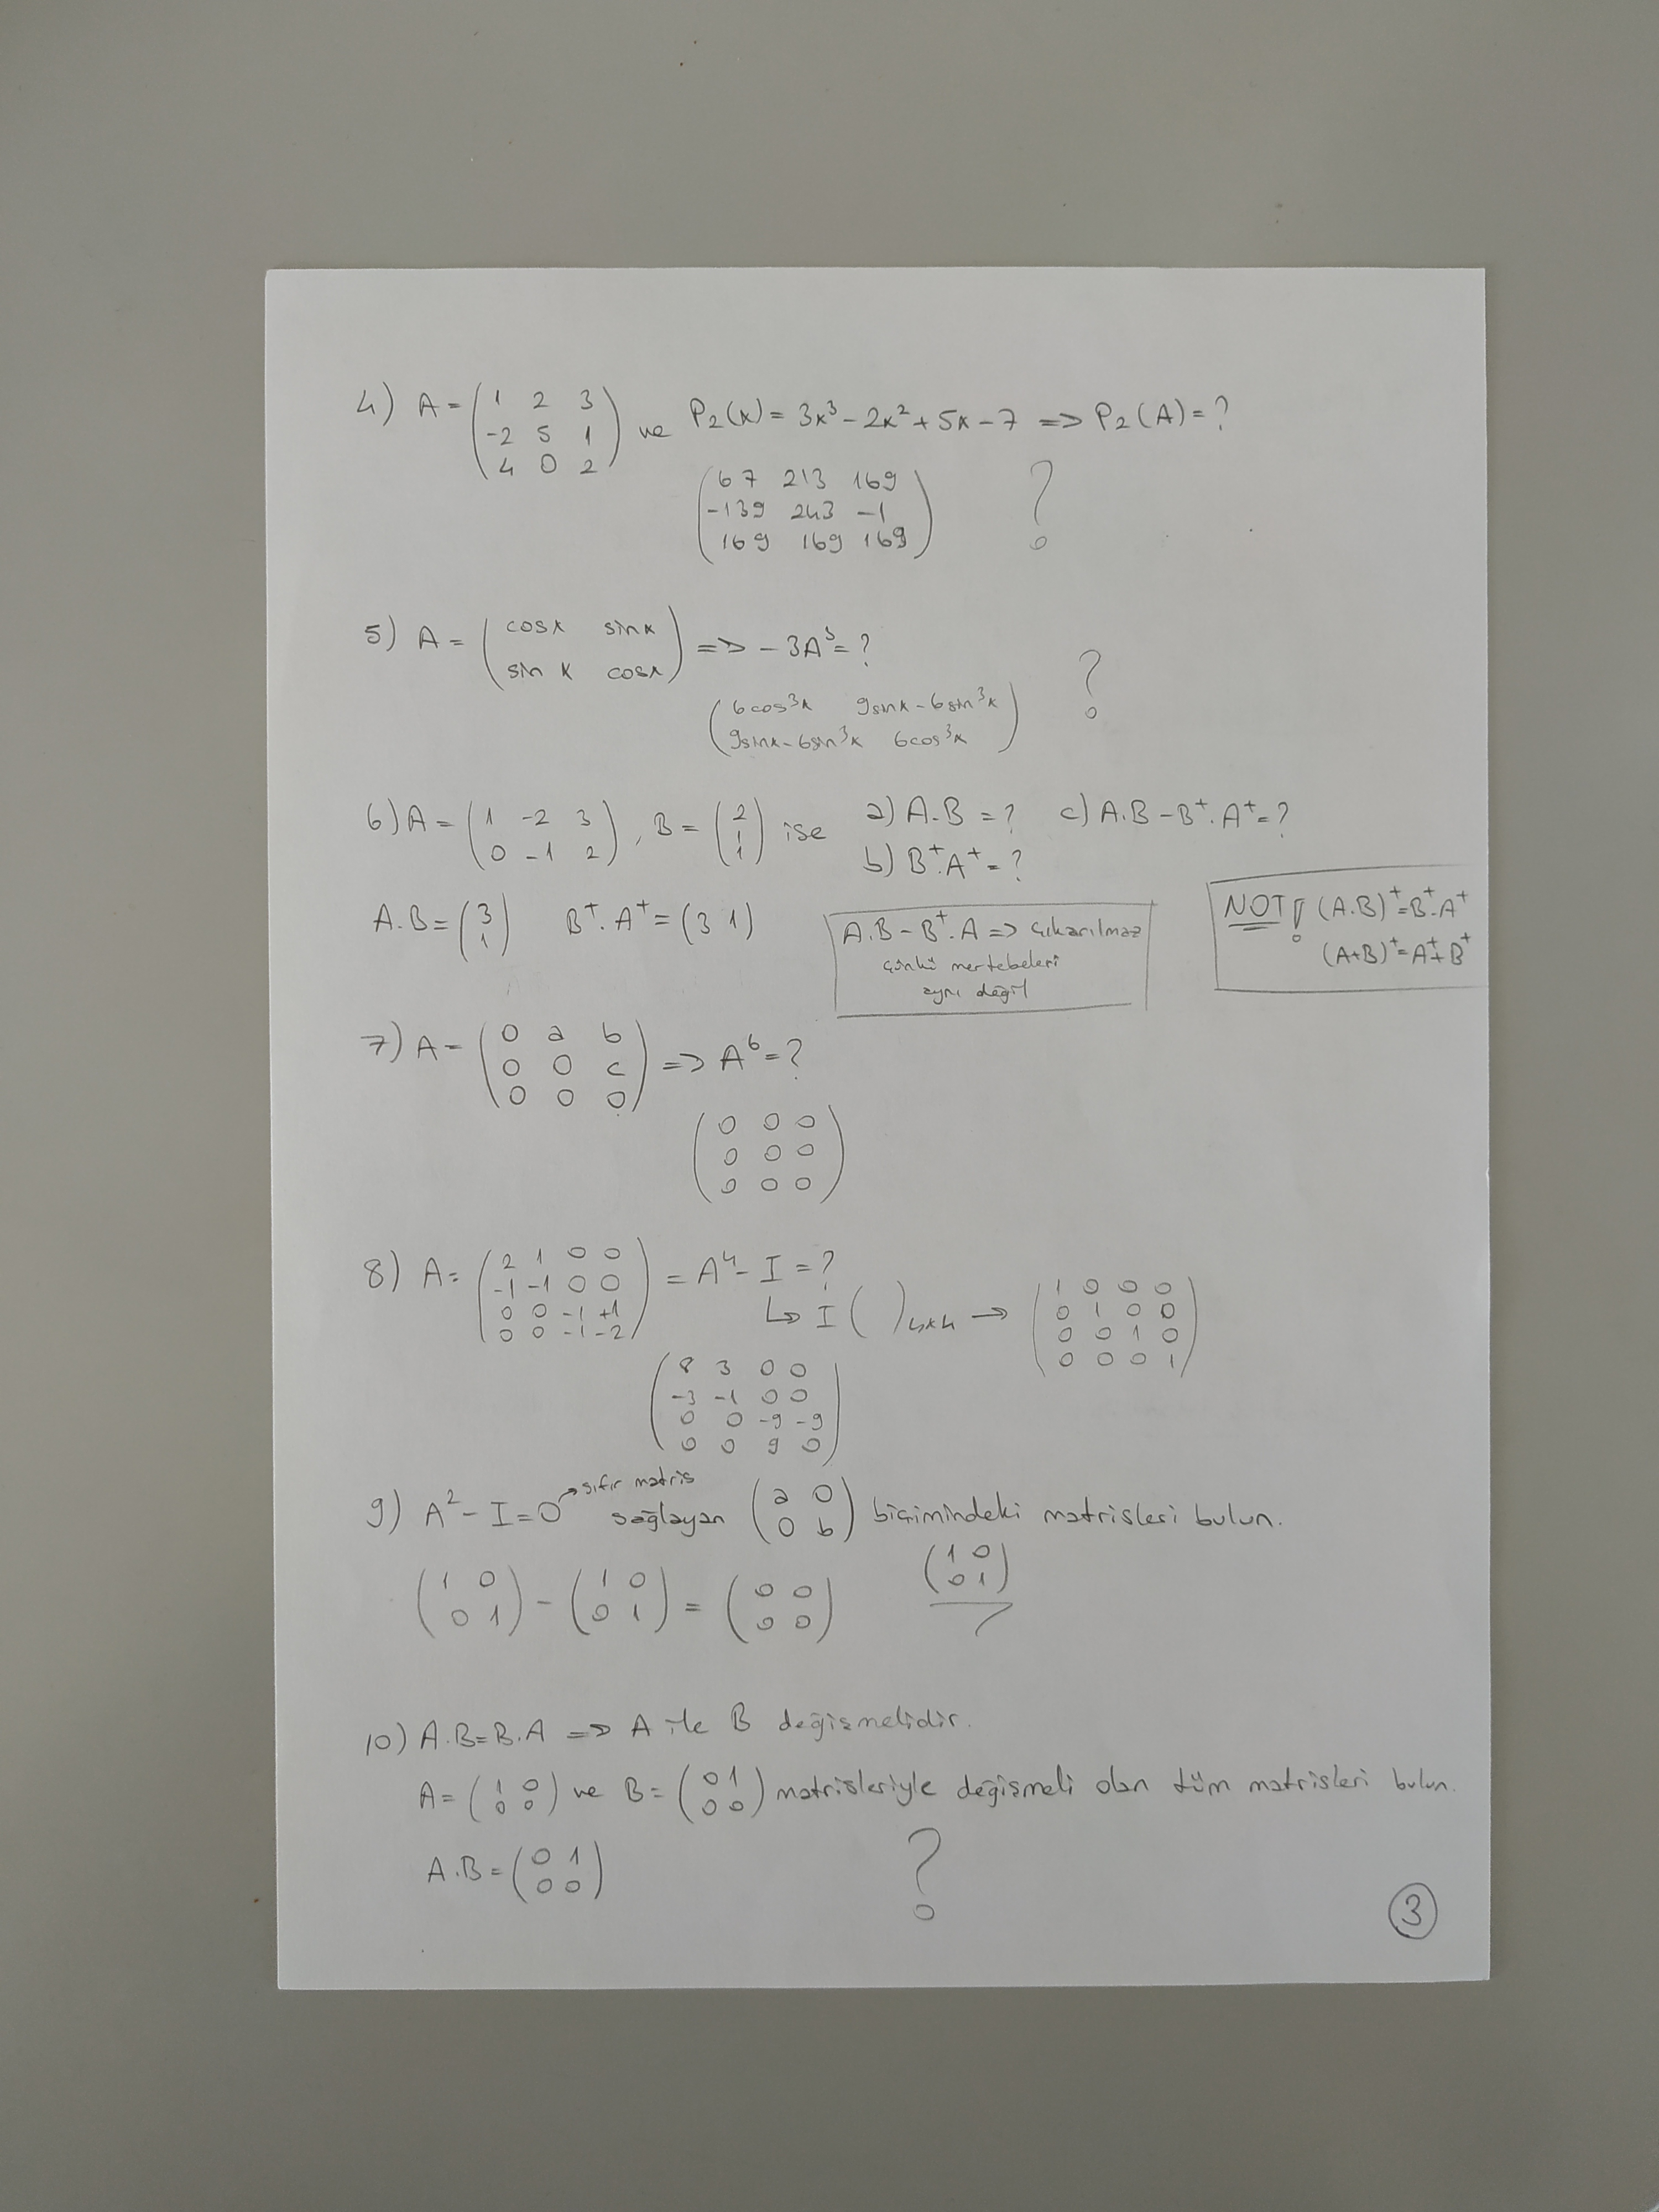 4) A = ( 1 2 3 ) ve P₂(x) = 3x³ - 2x² + 5x - 7 => P₂(A) = ?
-2 5 1
4 0 2
( 67 213 169 )
-139 243 -1
169 169 169
?
5) A = ( cosx sinx ) => -3A³ = ?
sin x cosx
( 6cos³x 9sinx - 6sin³x )
9sinx - 6sin³x 6cos³x
?
6) A = ( 1 -2 3 ), B = ( 2 ) ise a) A.B = ? c) A.B - B⁺.A⁺ = ?
0 -1 2 1 b) B⁺.A⁺ = ?
A.B = ( 3 ) B⁺.A⁺ = (3 1)
1
A.B - B⁺.A => çıkarılmaz
çünkü mertebeleri
aynı değil
NOT! (A.B)⁺ = B⁺.A⁺
(A+B)⁺ = A⁺+B⁺
7) A = ( 0 a b ) => A⁶ = ?
0 0 c
0 0 0
( 0 0 0 )
0 0 0
0 0 0
8) A = ( 2 1 0 0 ) = A⁴ - I = ?
-1 -1 0 0
0 0 -1 +1
0 0 -1 -2
↳ I ( )4x4 → ( 1 0 0 0 )
0 1 0 0
0 0 1 0
0 0 0 1
( 8 3 0 0 )
-3 -1 0 0
0 0 -9 -9
0 0 9 0
9) A² - I = 0 → sıfır matris sağlayan ( a 0 ) biçimindeki matrisleri bulun.
0 b
( 1 0 ) - ( 1 0 ) = ( 0 0 )
0 1 0 1 0 0
( 1 0 )
0 1
10) A.B = B.A => A ile B değişmelidir.
A = ( 1 0 ) ve B = ( 0 1 ) matrisleriyle değişmeli olan tüm matrisleri bulun.
0 0 0 0
A.B = ( 0 1 )
0 0
?
3